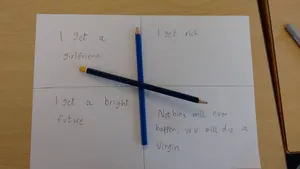 I get a
girlfriend
I get rich
I get a bright
future
Nothing will ever
happen, you will die a
virgin